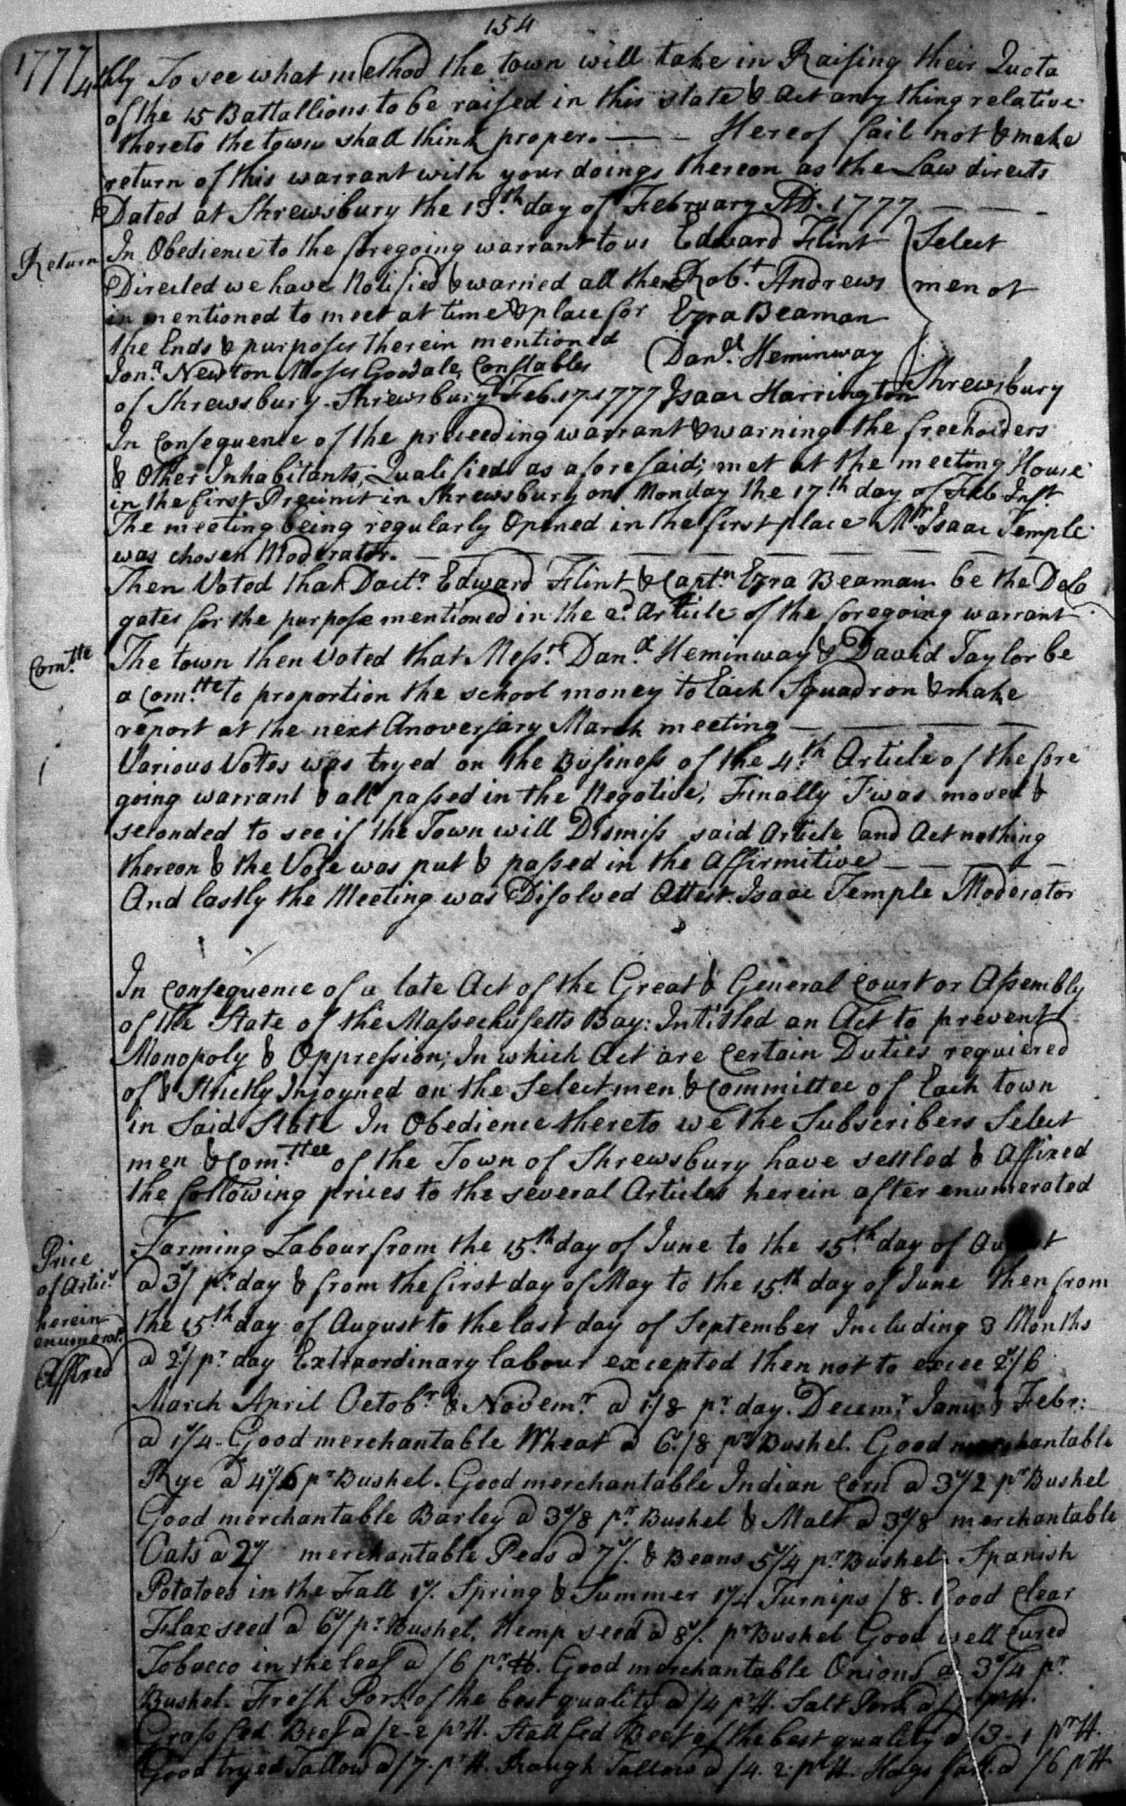 154
1777
4thly To see what method the town will take in Raising their Quota
of the 15 Battallions to be raised in this state & act any thing relative
thereto the town shall think proper. — — Hereof fail not & make
return of this warrant with your doings thereon as the Law directs
Dated at Shrewsbury the 13th day of February AD. 1777 — — —
Return
In Obedience to the foregoing warrant to us Edward Flint Select
Directed we have Notified & warned all there Robt. Andrews men of
in mentioned to meet at time & place for Ezra Beaman
the Ends & purposes therein mentioned Danll. Heminway
Jona. Newton Moses Goodale Constables
of Shrewsbury. Shrewsbury Feb. 17. 1777 Isaac Harrington Shrewsbury
In Consequence of the preceeding warrant & warning the freeholders
& Other Inhabitants, Qualified as aforesaid; met at the meeting House
in the first Precinct in Shrewsbury on Monday the 17th day of Feb Inst
The meeting being regularly Opened in the first place Mr Isaac Temple
was chosen Moderator. — — — — — — —
Then Voted that Doctr Edward Flint & Captn Ezra Beaman be the Dele
gates for the purpose mentioned in the 2d. Article of the foregoing warrant
Comttee
The town then Voted that Messrs Danll Heminway & David Taylor be
a Comttee to proportion the school money to Each Squadron & make
report at the next Anoversary March meeting — — — —
Various Votes was tryed on the Business of the 4th Article of the fore
going warrant & all passed in the Negative, Finally T'was moved &
seconded to see if the Town will Dismiss said Article and Act nothing
thereon & the Vote was put & passed in the Affirmitive — — — —
And lastly the Meeting was Disolved Attest. Isaac Temple Moderator
In Consequence of a late Act of the Great & General Court or Assembly
of the State of the Massechusetts Bay: Intitled an Act to prevent
Monopoly & Oppression; In which Act are Certain Duties requiered
of & Strictly Injoyned on the Selectmen & Committee of Each town
in Said State In Obedience thereto we the Subscribers Select
men & Comttee of the Town of Shrewsbury have settled & Affixed
the following prices to the several Articles herein after enumerated
Price
of Artics
herein
enumerat.d
Affixed
Farming Labour from the 15th day of June to the 15th day of August
a 3s/ pr day & from the first day of May to the 15th day of June then from
the 15th day of August to the last day of September Including 3 Months
a 2s/ pr day Extraordinary labour excepted then not to excee 2s/6
March April Octobr & Novemr a 1s/8 pr day. Decemr Janu: & Febr:
a 1s/4. Good merchantable Wheat a 6s/8 pr Bushel. Good merchantable
Rye a 4s/6 pr Bushel. Good merchantable Indian Corn a 3s/2 pr Bushel
Good merchantable Barley a 3s/8 pr Bushel & Malt a 3s/8 merchantable
Oats a 2s/ merchantable Peas a 7s/. & Beans 5s/4 pr Bushel, Spanish
Potatoes in the Fall 1s/. Spring & Summer 1s/4 Turnips /8. Good Clear
Flax seed a 6s/ pr Bushel. Hemp seed a 8s/. pr Bushel Good well Cured
Tobacco in the leaf a /6 pr lb. Good merchantable Onions a 3s/4 pr
Bushel. Fresh Pork of the best quality a /4 pr lb. Salt Pork a pr lb.
Grass fed Beef a /2-2 pr lb. Stall fed Beef of the best quality a /3-1 pr lb.
Good tryed Tallow a /7. pr lb. Rough Tallow a /4.2 pr lb. Hogs fatt a /6 pr lb